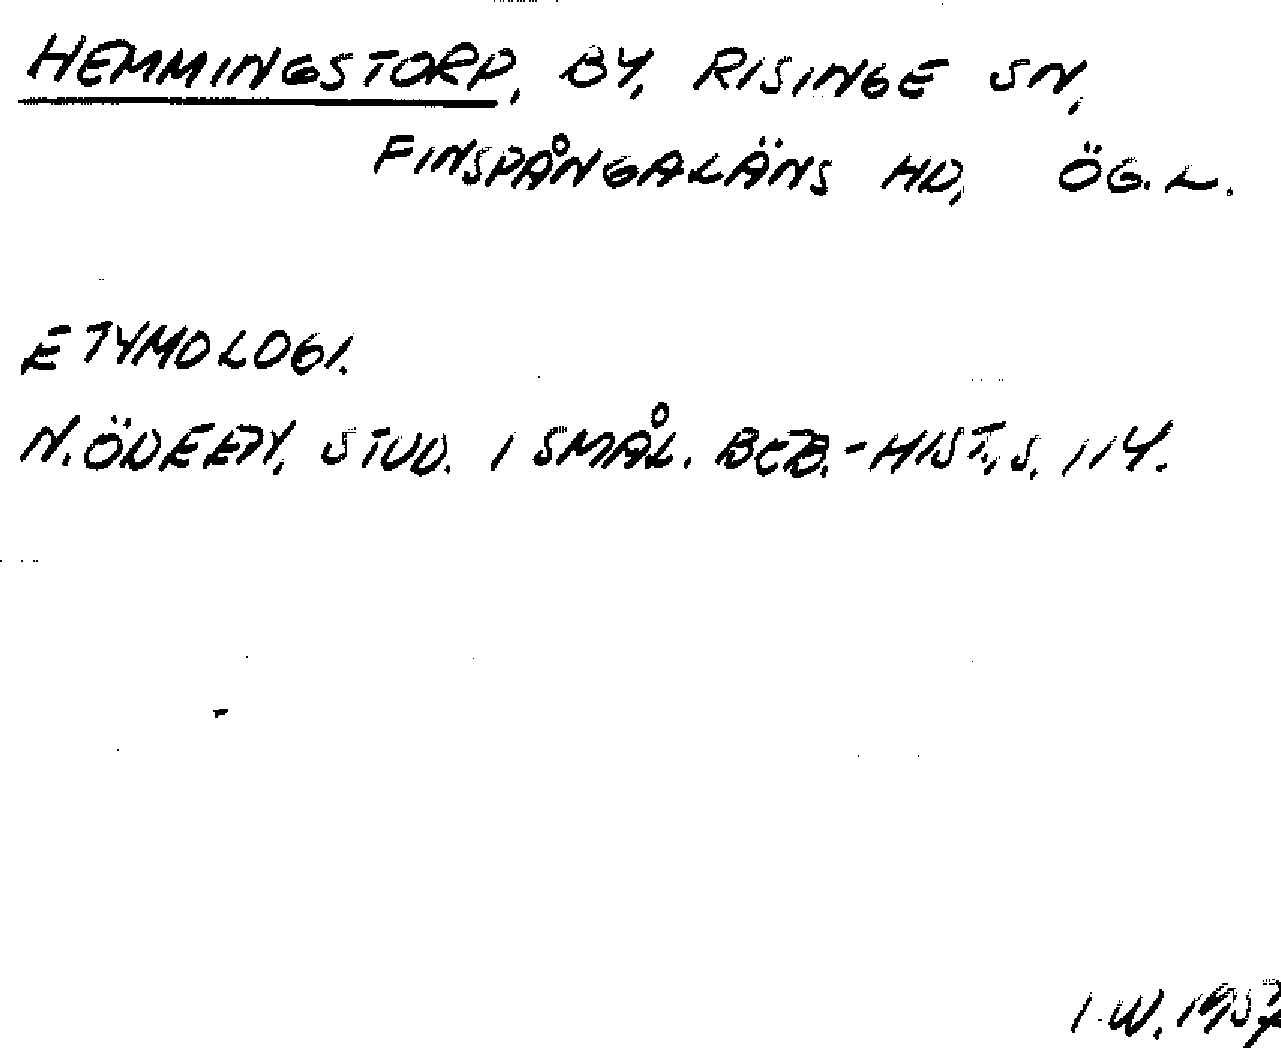 HEMMINGSTORP, BY, RISINGE SN,
FINSPÅNGALÄNS HD, ÖG. L.
ETYMOLOGI.
N. ÖDEEN, STUD. I SMÅL. BEB.-HIST., S. 114.
I.W. 1957